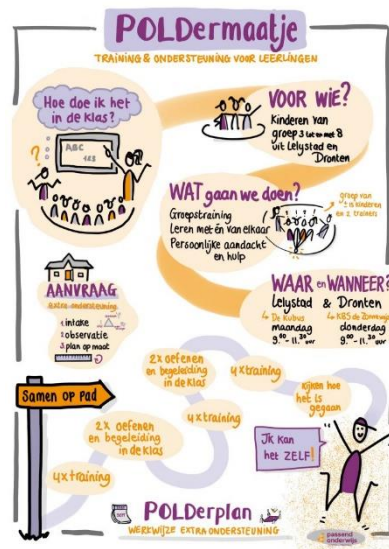 POLDermaatje
TRAINING & ONDERSTEUNING VOOR LEERLINGEN
Hoe doe ik het
in de klas?
ABC
?
VOOR WIE?
Kinderen van
groep 3 tot en met 8
uit Lelystad en
Dronten
WAT gaan we doen?
Groepstraining
Leren met én van elkaar
Persoonlijke aandacht
en hulp
groep van
kinderen
en 2 trainers
AANVRAAG
extra ondersteuning
1 intake
2 observatie
3 plan op maat
WAAR en WANNEER?
Lelystad & Dronten
De Kubus
maandag
9.00-11.30 uur
KBS de Zonnewijzer
donderdag
9.00-11.30 uur
Samen op pad
4x training
2x oefenen
en begeleiding
in de klas
4x training
2x oefenen
en begeleiding
in de klas
4x training
kijken hoe
het is
gegaan
Ik kan
het ZELF!
POLDerplan
WERKWIJZE EXTRA ONDERSTEUNING
passend
onderwijs